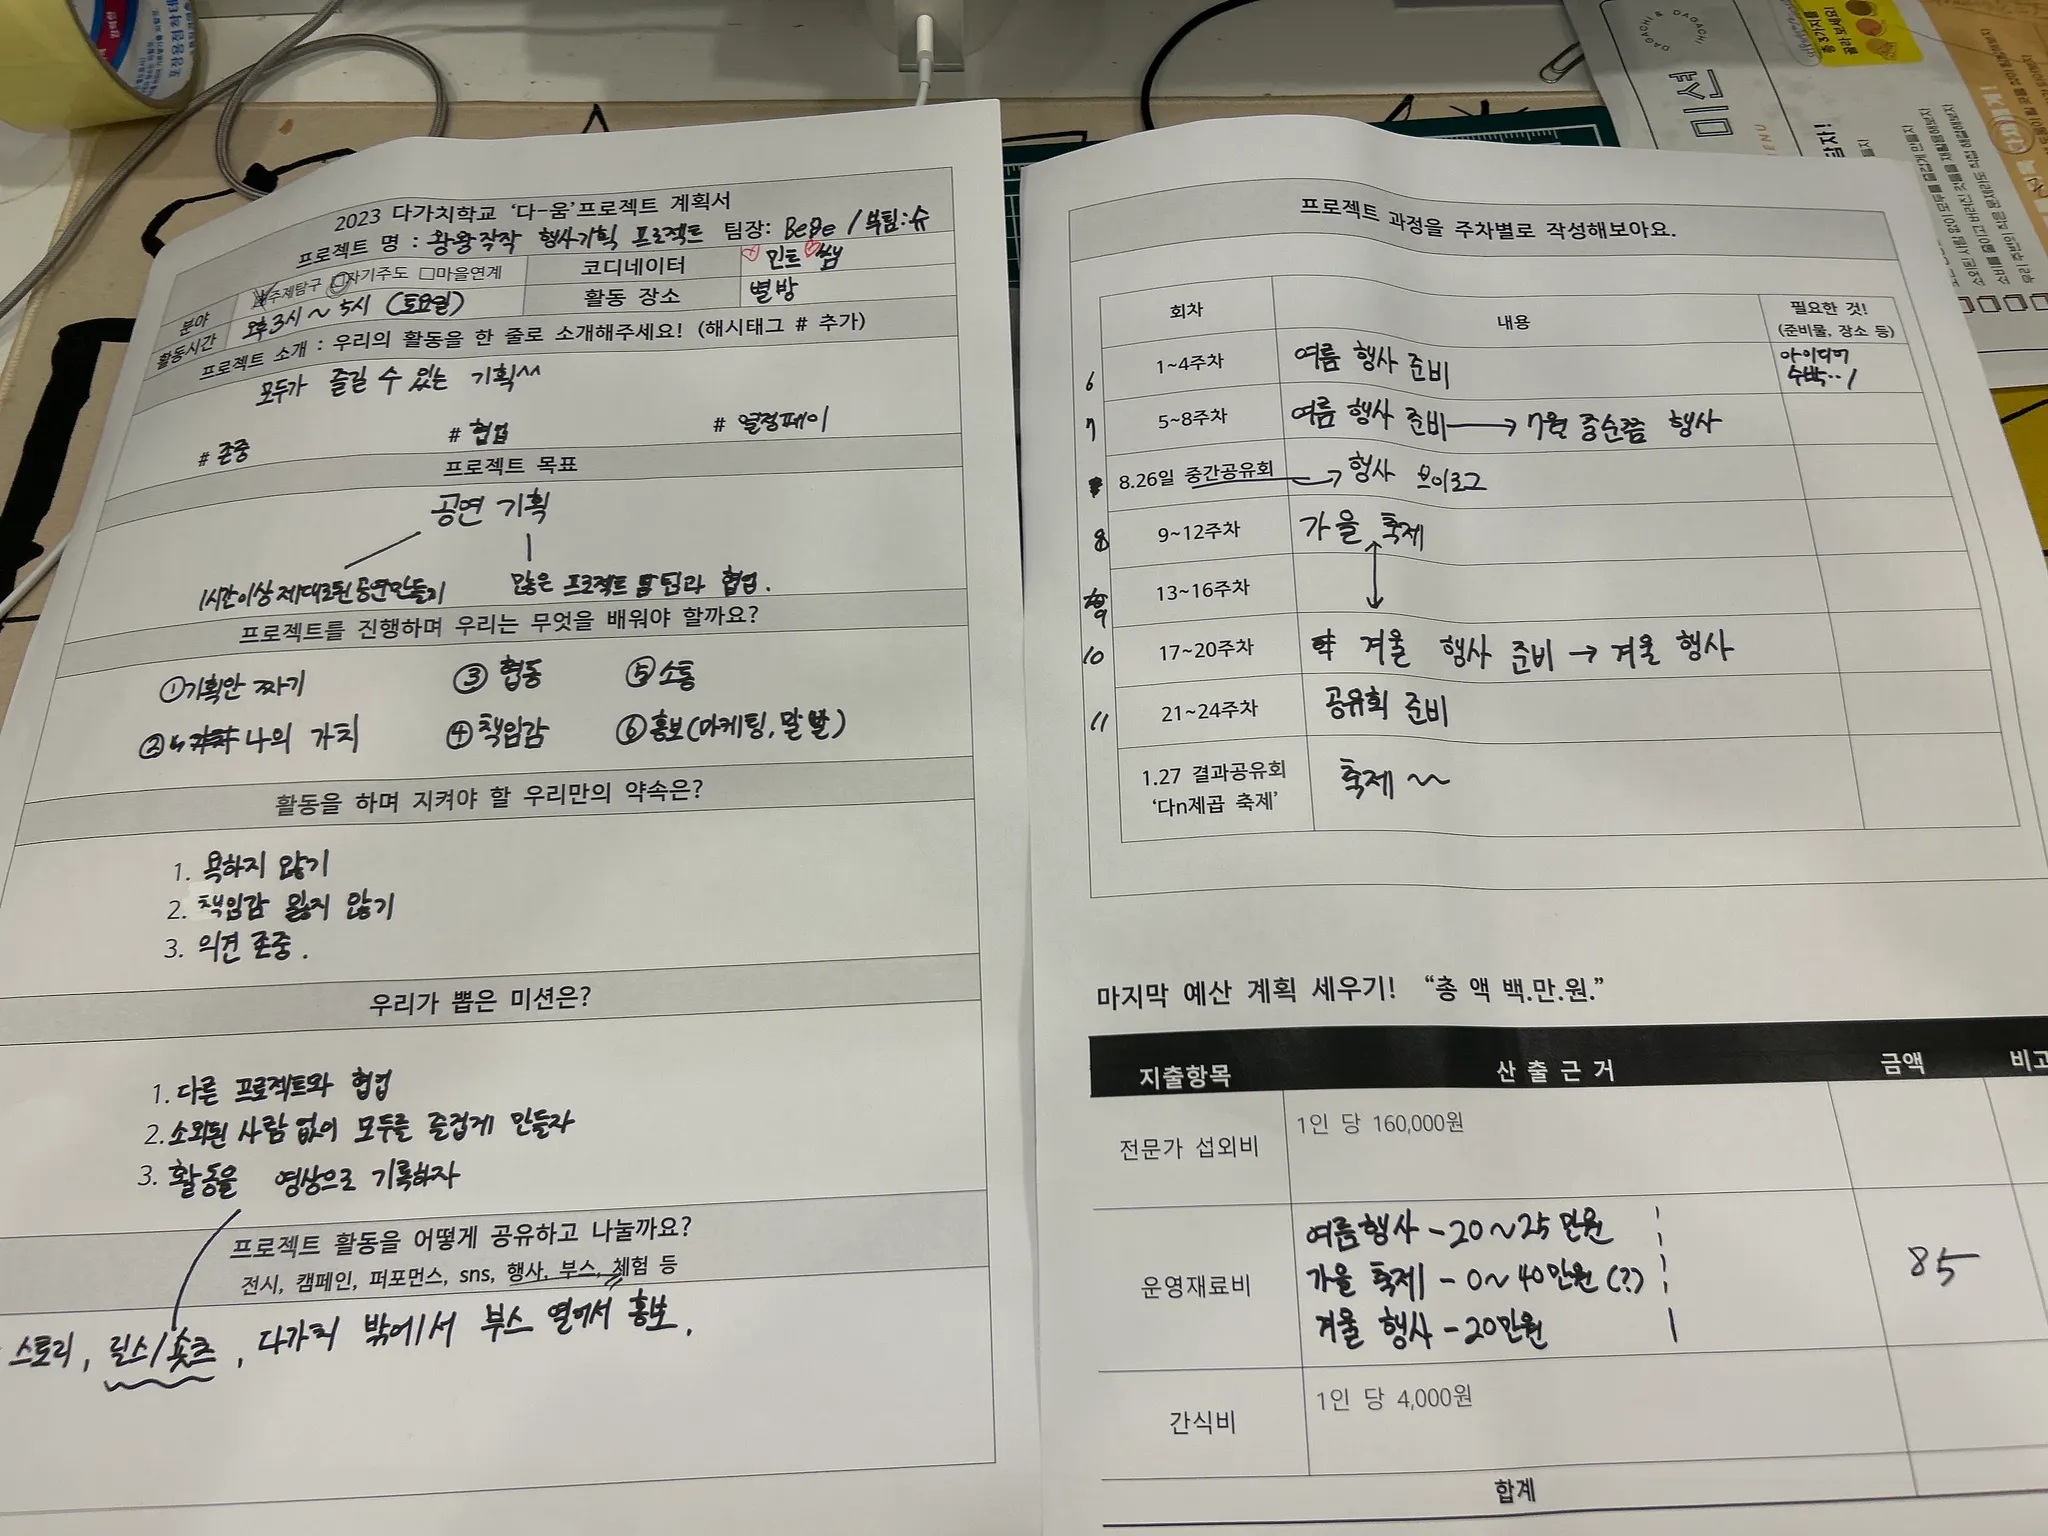 2023 다가치학교 ‘다-움’프로젝트 계획서
프로젝트 명 : 왕왕작작 행사기획 프로젝트 팀장: BeBe / 부팀:슈
분야 주제탐구 □자기주도 □마을연계 코디네이터 민트 쌤
활동시간 오후3시 ~ 5시 (토요일) 활동 장소 별방
프로젝트 소개 : 우리의 활동을 한 줄로 소개해주세요! (해시태그 # 추가)
모두가 즐길 수 있는 기획^^
# 존중 # 협업 # 열정페이
프로젝트 목표
공연 기획
1시간이상 제대로된 공연만들기 많은 프로젝트 팀과 협업.
프로젝트를 진행하며 우리는 무엇을 배워야 할까요?
①기획안 짜기 ③ 협동 ⑤소통
② 나의 가치 ④책임감 ⑥홍보(마케팅, 말빨)
활동을 하며 지켜야 할 우리만의 약속은?
1. 욕하지 않기
2. 책임감 잃지 않기
3. 의견 존중.
우리가 뽑은 미션은?
1. 다른 프로젝트와 협업
2. 소외된 사람 없이 모두를 즐겁게 만들자
3. 활동을 영상으로 기록하자
프로젝트 활동을 어떻게 공유하고 나눌까요?
전시, 캠페인, 퍼포먼스, sns, 행사, 부스, 체험 등
스토리, 릴스/숏츠, 다가치 밖에서 부스 열어서 홍보.
프로젝트 과정을 주차별로 작성해보아요.
회차 내용 필요한 것!
(준비물, 장소 등)
6 1~4주차 여름 행사 준비 아이디어
수박··!
7 5~8주차 여름 행사 준비 → 7월 중순쯤 행사
8.26일 중간공유회 → 행사 브이로그
8 9~12주차 가을 축제
9 13~16주차
10 17~20주차 겨울 행사 준비 → 겨울 행사
11 21~24주차 공유회 준비
1.27 결과공유회
‘다n제곱 축제’ 축제 ~~
마지막 예산 계획 세우기! “총 액 백.만.원.”
지출항목 산 출 근 거 금액 비고
전문가 섭외비 1인 당 160,000원
운영재료비 여름행사 - 20~25만원
가을 축제 - 0~40만원(?)
겨울 행사 - 20만원
85
간식비 1인 당 4,000원
합계
DAGACHI & DAGACHI
미션
MENU
총 3가지를
골라 보세요!
포장용접착테